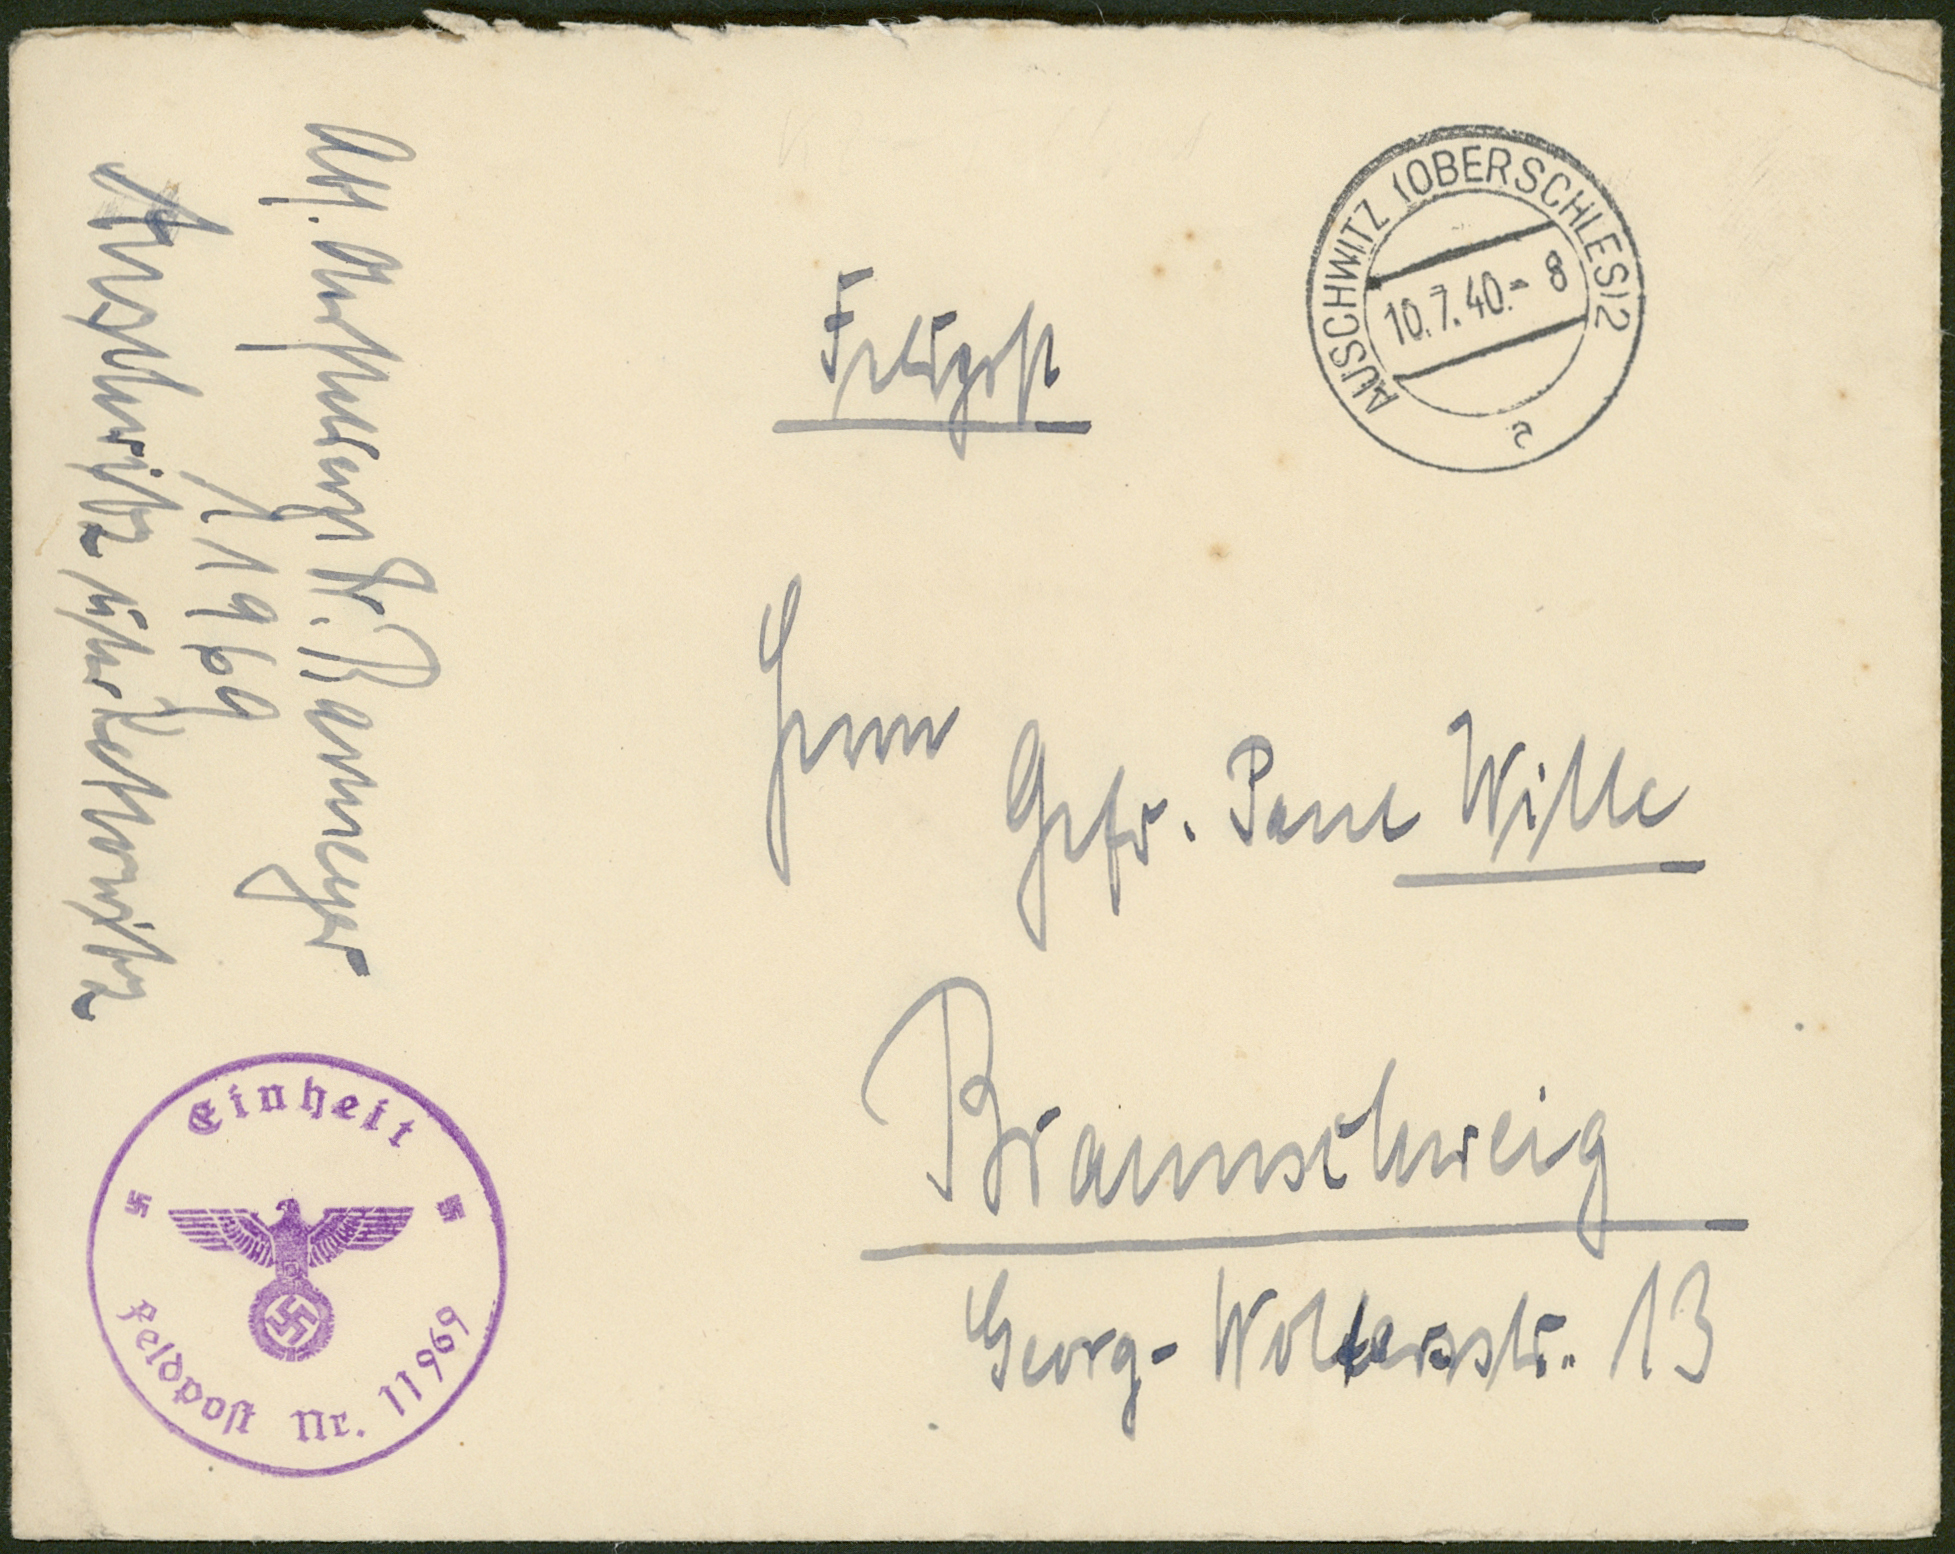 AUSCHWITZ (OBERSCHLES) 2
10.7.40.- 8
a
Feldpost
Herrn
Gefr. Paul Wille
Braunschweig
Georg-Woltersstr. 13
Abs.
11969
Auschwitz über Kattowitz
Einheit
Feldpost Nr. 11969